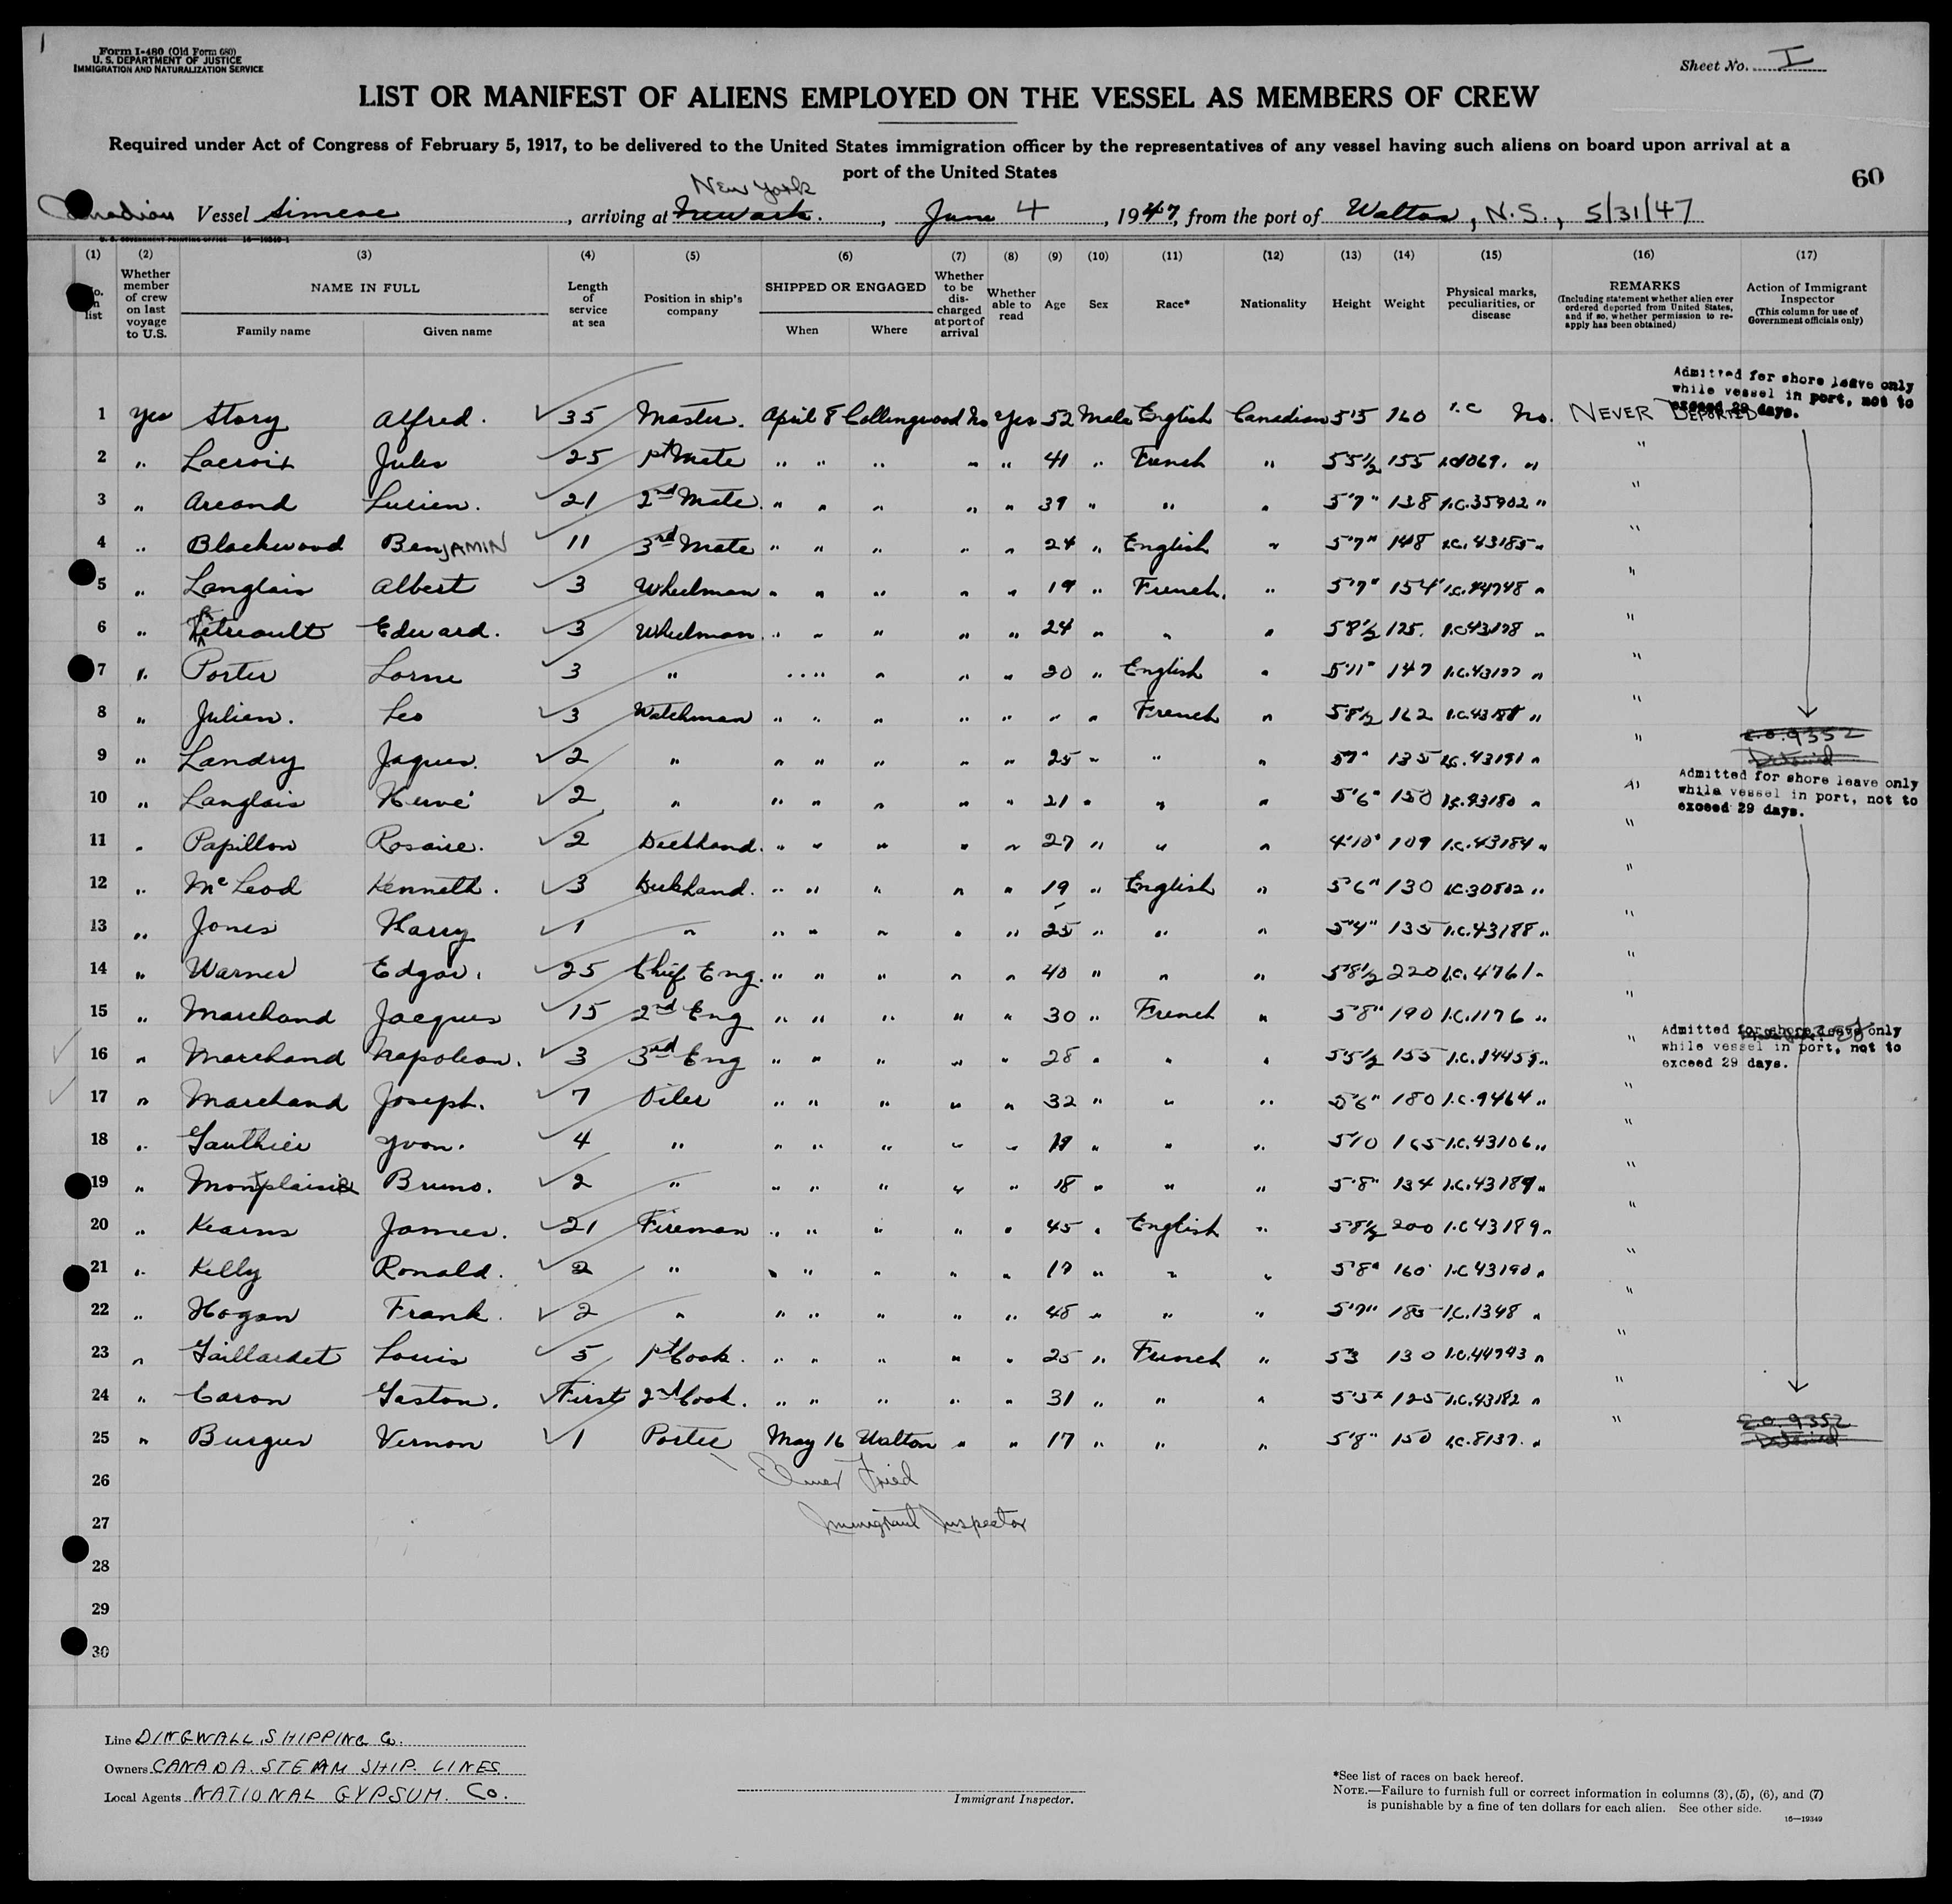 1
Form I-480 (Old Form 680)
U. S. DEPARTMENT OF JUSTICE
IMMIGRATION AND NATURALIZATION SERVICE
Sheet No. I
LIST OR MANIFEST OF ALIENS EMPLOYED ON THE VESSEL AS MEMBERS OF CREW
Required under Act of Congress of February 5, 1917, to be delivered to the United States immigration officer by the representatives of any vessel having such aliens on board upon arrival at a
port of the United States
60
New York
Canadian Vessel Simcoe, arriving at Newark, June 4, 1947, from the port of Walton, N.S., 5/31/47
U. S. GOVERNMENT PRINTING OFFICE 16-19349-1
(1) (2) (3) (4) (5) (6) (7) (8) (9) (10) (11) (12) (13) (14) (15) (16) (17)
No. in list
Whether member of crew on last voyage to U.S.
NAME IN FULL
Family name Given name
Length of service at sea
Position in ship's company
SHIPPED OR ENGAGED
When Where
Whether to be discharged at port of arrival
Whether able to read
Age Sex Race* Nationality Height Weight
Physical marks, peculiarities, or disease
REMARKS
(Including statement whether alien ever ordered deported from United States, and if so, whether permission to reapply has been obtained)
Action of Immigrant Inspector
(This column for use of Government officials only)
Admitted for shore leave only
while vessel in port, not to
exceed 29 days.
1 Yes Story Alfred. 35 Master. April 8 Collingwood No Yes 52 Male English Canadian 5'5 160 I.C No. NEVER DEPORTED
2 " Lacroix Jules 25 1st Mate " " " " " 41 " French " 5 5½ 155 "
3 " Arcand Lucien. 21 2nd Mate. " " " " " 39 " " " 5'7" 138 I.C.35902 " "
4 " Blackwood BenJAMIN 11 3rd Mate " " " " " 24 " English " 5'7" 148 I.C.43185 " "
5 " Langlais Albert 3 Wheelman " " " " " 19 " French. " 5'7" 154 I.C.44748 " "
6 " Tetreault Edward. 3 Wheelman. " " " " " 24 " " " 5 8½ 125. "
7 " Porter Lorne 3 " " " " " " 20 " English " 5'11" 147 "
8 " Julien. Leo 3 Watchman " " " " " " " French " 5'8½ 162 "
E.O. 9352
Detained
9 " Landry Jaques. 2 " " " " " " 25 " " " 5'7" 135 I.C.43191 " "
Admitted for shore leave only
while vessel in port, not to
exceed 29 days.
10 " Langlais Hervé 2 " " " " " " 21 " " " 5'6" 150 I.C.43180 " "
11 " Papillon Rosaire. 2 Deckhand. " " " " " 27 " " " 4'10" 109 I.C.43184 " "
12 " McLeod Kenneth. 3 Deckhand. " " " " " 19 " English " 5'6" 130 I.C.30802 " "
13 " Jones Harry 1 " " " " " " 25 " " " 5'4" 135 I.C.43188 " "
14 " Warner Edgar. 25 Chief Eng. " " " " " 40 " " " 5'8½ 220 I.C.4761 " "
15 " Marchand Jacques 15 2nd Eng " " " " " 30 " French " 5'8" 190 I.C.1176 " "
Admitted for shore leave only
while vessel in port, not to
exceed 29 days.
16 " Marchand Napoleon. 3 3rd Eng " " " " " 28 " " " 5 5½ 155 "
17 " Marchand Joseph. 7 Oiler " " " " " 32 " " " 5'6" 180 I.C.9464 " "
18 " Gauthier Yvon. 4 " " " " " " 19 " " " 5'10 165 I.C.43106 " "
19 " Monplaisir Bruno. 2 " " " " " " 18 " " " 5'8" 134 I.C.43189 " "
20 " Kearns James. 21 Fireman " " " " " 45 " English " 5'8½ 200 I.C 43189 " "
21 " Kelly Ronald. 2 " " " " " " 19 " " " 5'8" 160 I.C 43190 " "
22 " Hogan Frank. 2 " " " " " " 45 " " " 5'7" 185 I.C.1348 " "
23 " Gaillardet Louis 5 1st Cook. " " " " " 25 " French " 5'3 130 I.C.44943 " "
24 " Caron Gaston. First 2nd Cook. " " " " " 31 " " " 5'5" 125 I.C.43182 " "
E.O. 9352
Detained
25 " Burgus Vernon 1 Porter May 16 Walton " " 17 " " " 5'8" 150 I.C.8137. " "
26 Elmer Fried
27 Immigrant Inspector
28
29
30
Line DINGWALL SHIPPING Co.
Owners CANADA STEAM SHIP LINES
Local Agents NATIONAL GYPSUM. Co.
Immigrant Inspector.
*See list of races on back hereof.
NOTE.—Failure to furnish full or correct information in columns (3), (5), (6), and (7)
is punishable by a fine of ten dollars for each alien. See other side.
16—19349